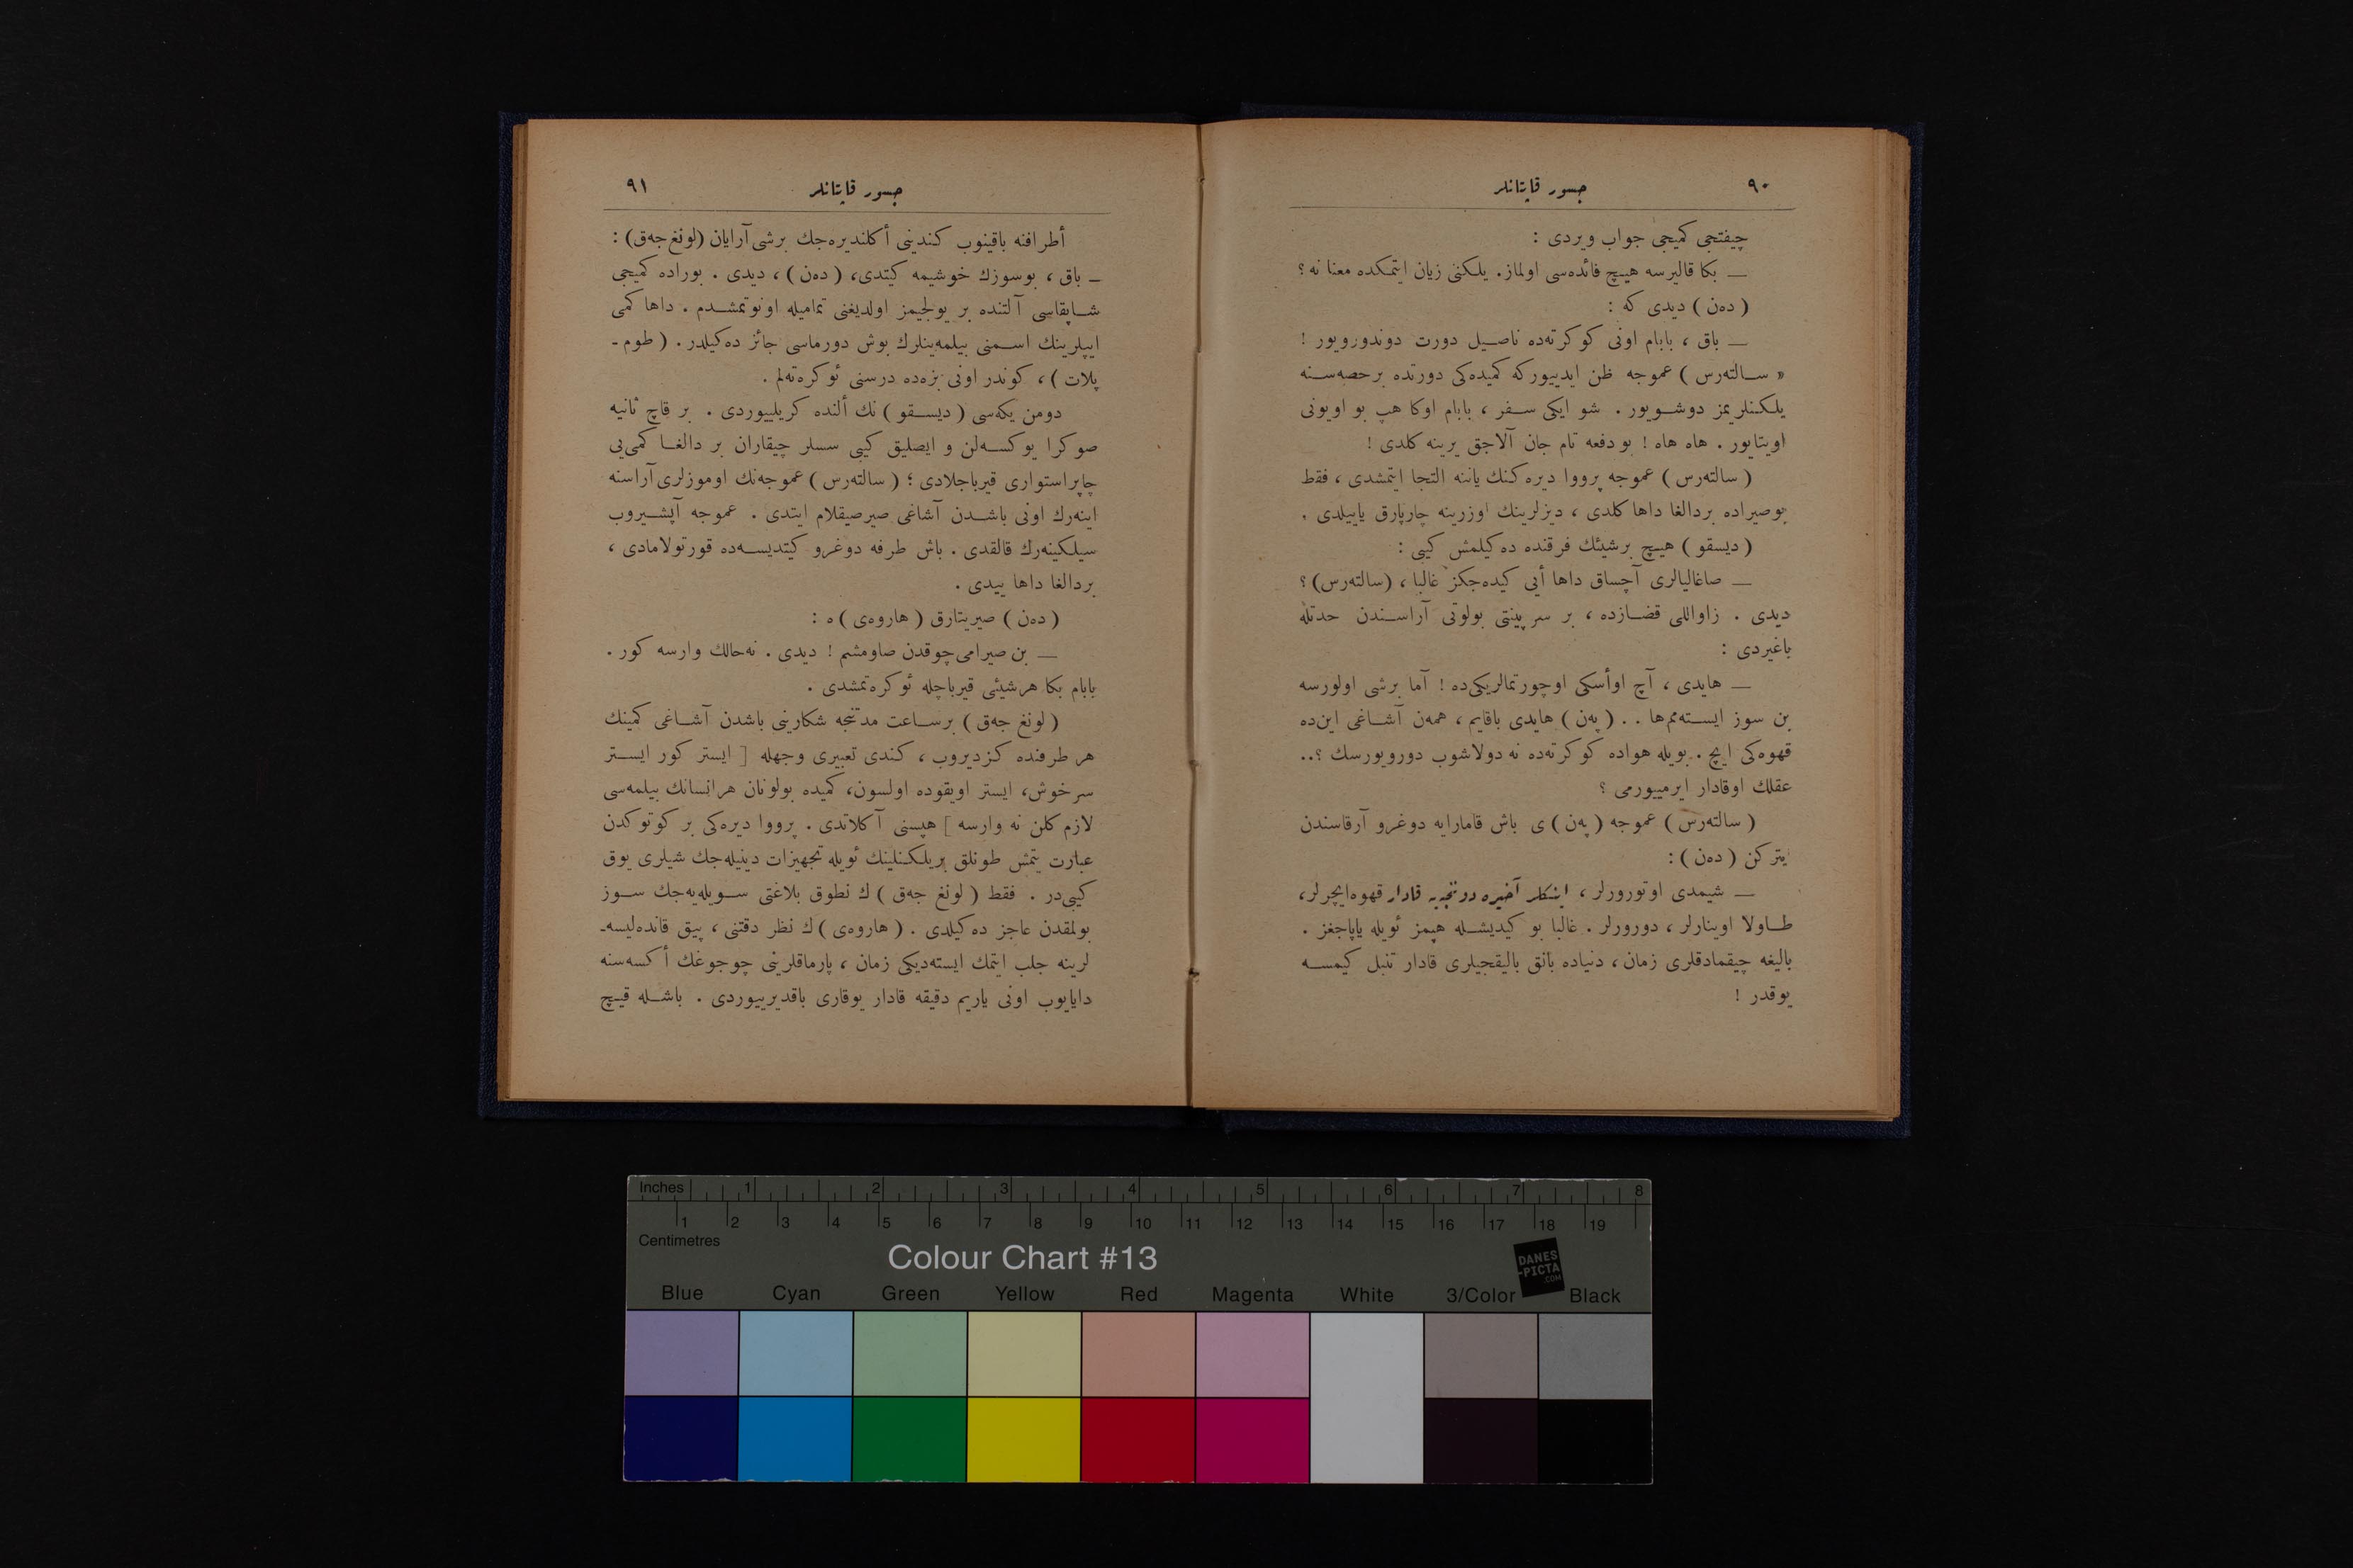 ٩٠
جسور قاپتانلر
چيفتجی كميجی جواب ويردی :
— بكا قاليرسه هيچ فائده‌سی اولماز. يلكنی زيان ايتمكده معنا نه ؟
( ده‌ن ) ديدی كه :
— باق ، بابام اونی كوكرته‌ده ناصيل دورت دوندورويور !
« سالته‌رس ) عموجه ظن ايدييوركه كميده‌كی دورتده بر حصه‌سنه
يلكنلريمز دوشويور . شو ايكی سفر ، بابام اوكا هپ بو اويونی
اوينايور . هاه هاه ! بو دفعه تام جان آلاجق يرينه كلدی !
( سالته‌رس ) عموجه پرووا ديره‌كنك ياننه التجا ايتمشدی ، فقط
بوصيراده بردالغا داها كلدی ، ديزلرينك اوزرينه چارپارق ياييلدی .
( ديسقو ) هيچ برشيئك فرقنده ده‌كيلمش كيبی :
— صاغاليالری آچساق داها أيی كيده‌جكز غالبا ، (سالته‌رس) ؟
ديدی . زاواللی قضازده ، بر سرپينتی بولوتی آراسندن حدتله
باغيردی :
— هايدی ، آچ اوأسكی اوچورتمالريكی‌ده ! آما برشی اولورسه
بن سوز ايسته‌مم‌ها .. ( په‌ن ) هايدی باقايم ، همه‌ن آشاغی اين‌ده
قهوه‌كی ايچ . بويله هواده كوكرته‌ده نه دولاشوب دورويورسك ؟..
عقلك اوقادار ايرمييورمی ؟
( سالته‌رس ) عموجه ( په‌ن ) ی باش قامارايه دوغرو آرقاسندن
ايتركن ( ده‌ن ) :
— شيمدی اوتورورلر ، اينكلر آخيره دوننجه‌يه قادار قهوه‌ايچرلر،
طاولا اوينارلر ، دورورلر . غالبا بو كيديشله هپمز ئويله ياپاجغز .
باليغه چيقمادقلری زمان ، دنياده بانق باليقجيلری قادار تنبل كيمسه
يوقدر !
٩١
جسور قاپتانلر
أطرافنه باقينوب كندينی أكلنديره‌جك برشی آرايان (لونغ جه‌ق) :
ـ باق ، بوسوزك خوشيمه كيتدی، ( ده‌ن ) ، ديدی . بوراده كميجی
شاپقاسی آلتنده بر يولجيمز اولديغنی تماميله اونوتمشدم . داها كمی
ايپلرينك اسمنی بيلمه‌ينلرك بوش دورماسی جائز ده‌كيلدر . ( طوم ـ
پلات ) ، كوندر اونی بزه‌ده درسنی ئوكره‌ته‌لم .
دومن يكه‌سی ( ديسقو ) نك ألنده كريلييوردی . بر قاچ ثانيه
صوكرا يوكسه‌لن و ايصليق كيبی سسلر چيقاران بر دالغا كمی‌يی
چاپراستواری قيرباجلادی ؛ ( سالته‌رس ) عموجه‌نك اوموزلری آراسنه
اينه‌رك اونی باشدن آشاغی صيرصيقلام ايتدی . عموجه آپشيروب
سيلكينه‌رك قالقدی . باش طرفه دوغرو كيتديسه‌ده قورتولامادی ،
بردالغا داها ييدی .
( ده‌ن ) صيريتارق ( هاروه‌ی ) ه :
— بن صيرامی چوقدن صاومشم ! ديدی . نه‌حالك وارسه كور .
بابام بكا هرشيئی قيرباچله ئوكره‌تمشدی .
( لونغ جه‌ق ) برساعت مدتنجه شكارينی باشدن آشاغی كمينك
هر طرفنده كزديروب ، كندی تعبيری وجهله [ ايستر كور ايستر
سرخوش، ايستر اويقوده اولسون، كميده بولونان هرانسانك بيلمه‌سی
لازم كلن نه وارسه ] هپسنی آكلاتدی . پرووا ديره‌كی بر كوتوكدن
عبارت يتمش طونلق بريلكنلينك ئويله تجهيزات دينيله‌جك شيلری يوق
كيبی‌در . فقط ( لونغ جه‌ق ) ك نطوق بلاغتی سويله‌يه‌جك سوز
بولمقدن عاجز ده‌كيلدی . ( هاروه‌ی ) ك نظر دقتنی ، پيق قانده‌ليسه‌ـ
لرينه جلب ايتمك ايسته‌ديكی زمان ، پارماقلرينی چوجوغك أكسه‌سنه
دايايوب اونی ياريم دقيقه قادار يوقاری باقديرييوردی . باشله قيچ
Inches 1 2 3 4 5 6 7 8
1 2 3 4 5 6 7 8 9 10 11 12 13 14 15 16 17 18 19
Centimetres
Colour Chart #13
DANES
-PICTA
.COM
Blue Cyan Green Yellow Red Magenta White 3/Color Black